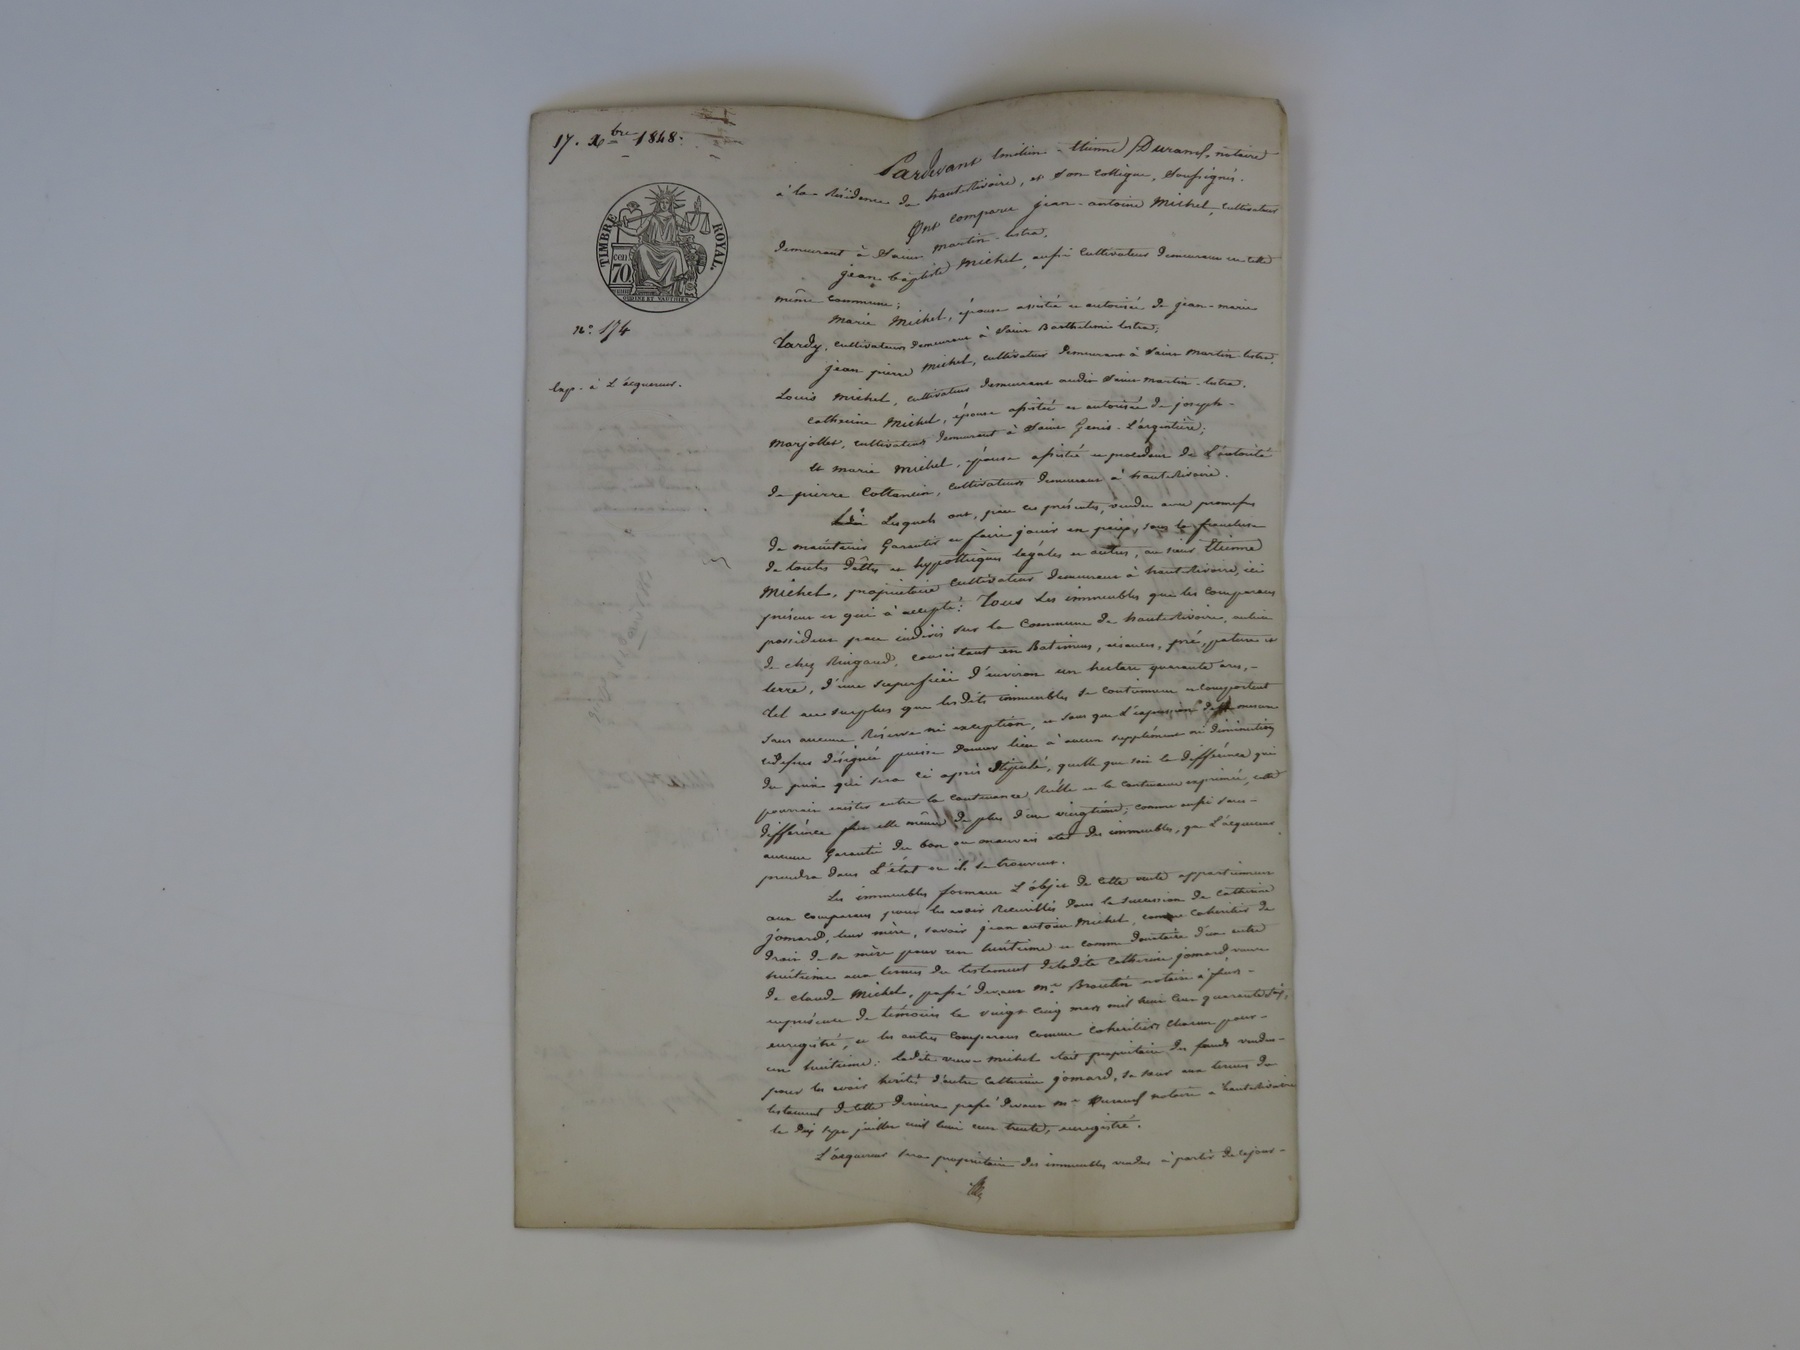 17. Xbre 1848.
TIMBRE ROYAL.
cen
70
n.° 174
Exp. à L'acquereur.
Pardevant Emilien-Etienne Durand, notaire
à la Résidence de hauteRivoire, et Son Collègue, Soussignés.
Ont comparu jean-antoine Michel, Cultivateur
demeurant à Saint Martin-lestra,
jean baptiste Michel, aussi Cultivateur demeurant en cette
même commune;
Marie Michel, épouse assistée et autorisée de jean-marie
Tardy, cultivateur demeurant à Saint Barthelemie lestra;
jean pierre Michel, cultivateur demeurant à Saint Martin lestra,
Louis Michel, cultivateur demeurant audit Saint Martin-lestra.
catherine Michel, épouse assistée et autorisée de joseph-
Marjollet, cultivateur demeurant à Saint Genis-L'argentière;
Et marie Michel, épouse assistée et procedant de L'autorité
de pierre Coltancin, cultivateur demeurant à hauteRivoire.
Lesquels ont, par ces présentes, vendu avec promesse
de maintenir Garantir et faire jouir en paix, sous la franchise
de toutes dettes et hypothèques légales et autres, au sieur Etienne
Michel, propriétaire cultivateur demeurant à hauteRivoire, ici
présent et qui à accepté: Tous Les immeubles que les comparans
possèdent par indivis sur la Commune de hauteRivoire, au lieu
de chez Ringaud, consistant en Batimens, aisances, pré, pature et
terre, d'une superficie d'environ un hectare quarante ares,-
Tel au surplus que lesdits immeubles se contiennent et comportent
sans aucune Réserve ni exception, et sans que L'expression de mesure
cidessus désignée puisse donner lieu à aucun supplément ni diminution
du prix qui sera ci après Stipulé, quelle que soit la différence qui
pourrait exister entre la contenance Réelle et la contenance exprimée, cette
différence fut elle même de plus d'un vingtième; comme aussi sans-
aucune Garantie du bon ou mauvais état des immeubles, que L'acquereur
prendra dans L'état où ils se trouvent.
Les immeubles formant L'objet de cette vente appartiennent
aux comparans pour les avoir Recueillis dans la succession de Catherine
jomard, leur mère, savoir jean antoine Michel, comme cohéritier de
droit de sa mère pour un huitième et comme donataire d'un autre
huitième aux termes du testament de ladite Catherine jomard, veuve
de claude Michel, passé devant Me
notaire à
en présence de témoins le vingt cinq mars mil huit cent quarante
enregistré; et les autres comparans comme cohéritiers chacun pour-
un huitième: Ladite veuve Michel etait propriétaire des fonds vendus-
pour les avoir hérité d'autre Catherine jomard, sa sœur aux termes du
testament de cette dernière passé devant Me Durand notaire à hauteRivoire
le dix sept juillet mil huit cent trente, enregistré.
L'acquereur sera propriétaire des immeubles vendus à partir de ce jour-